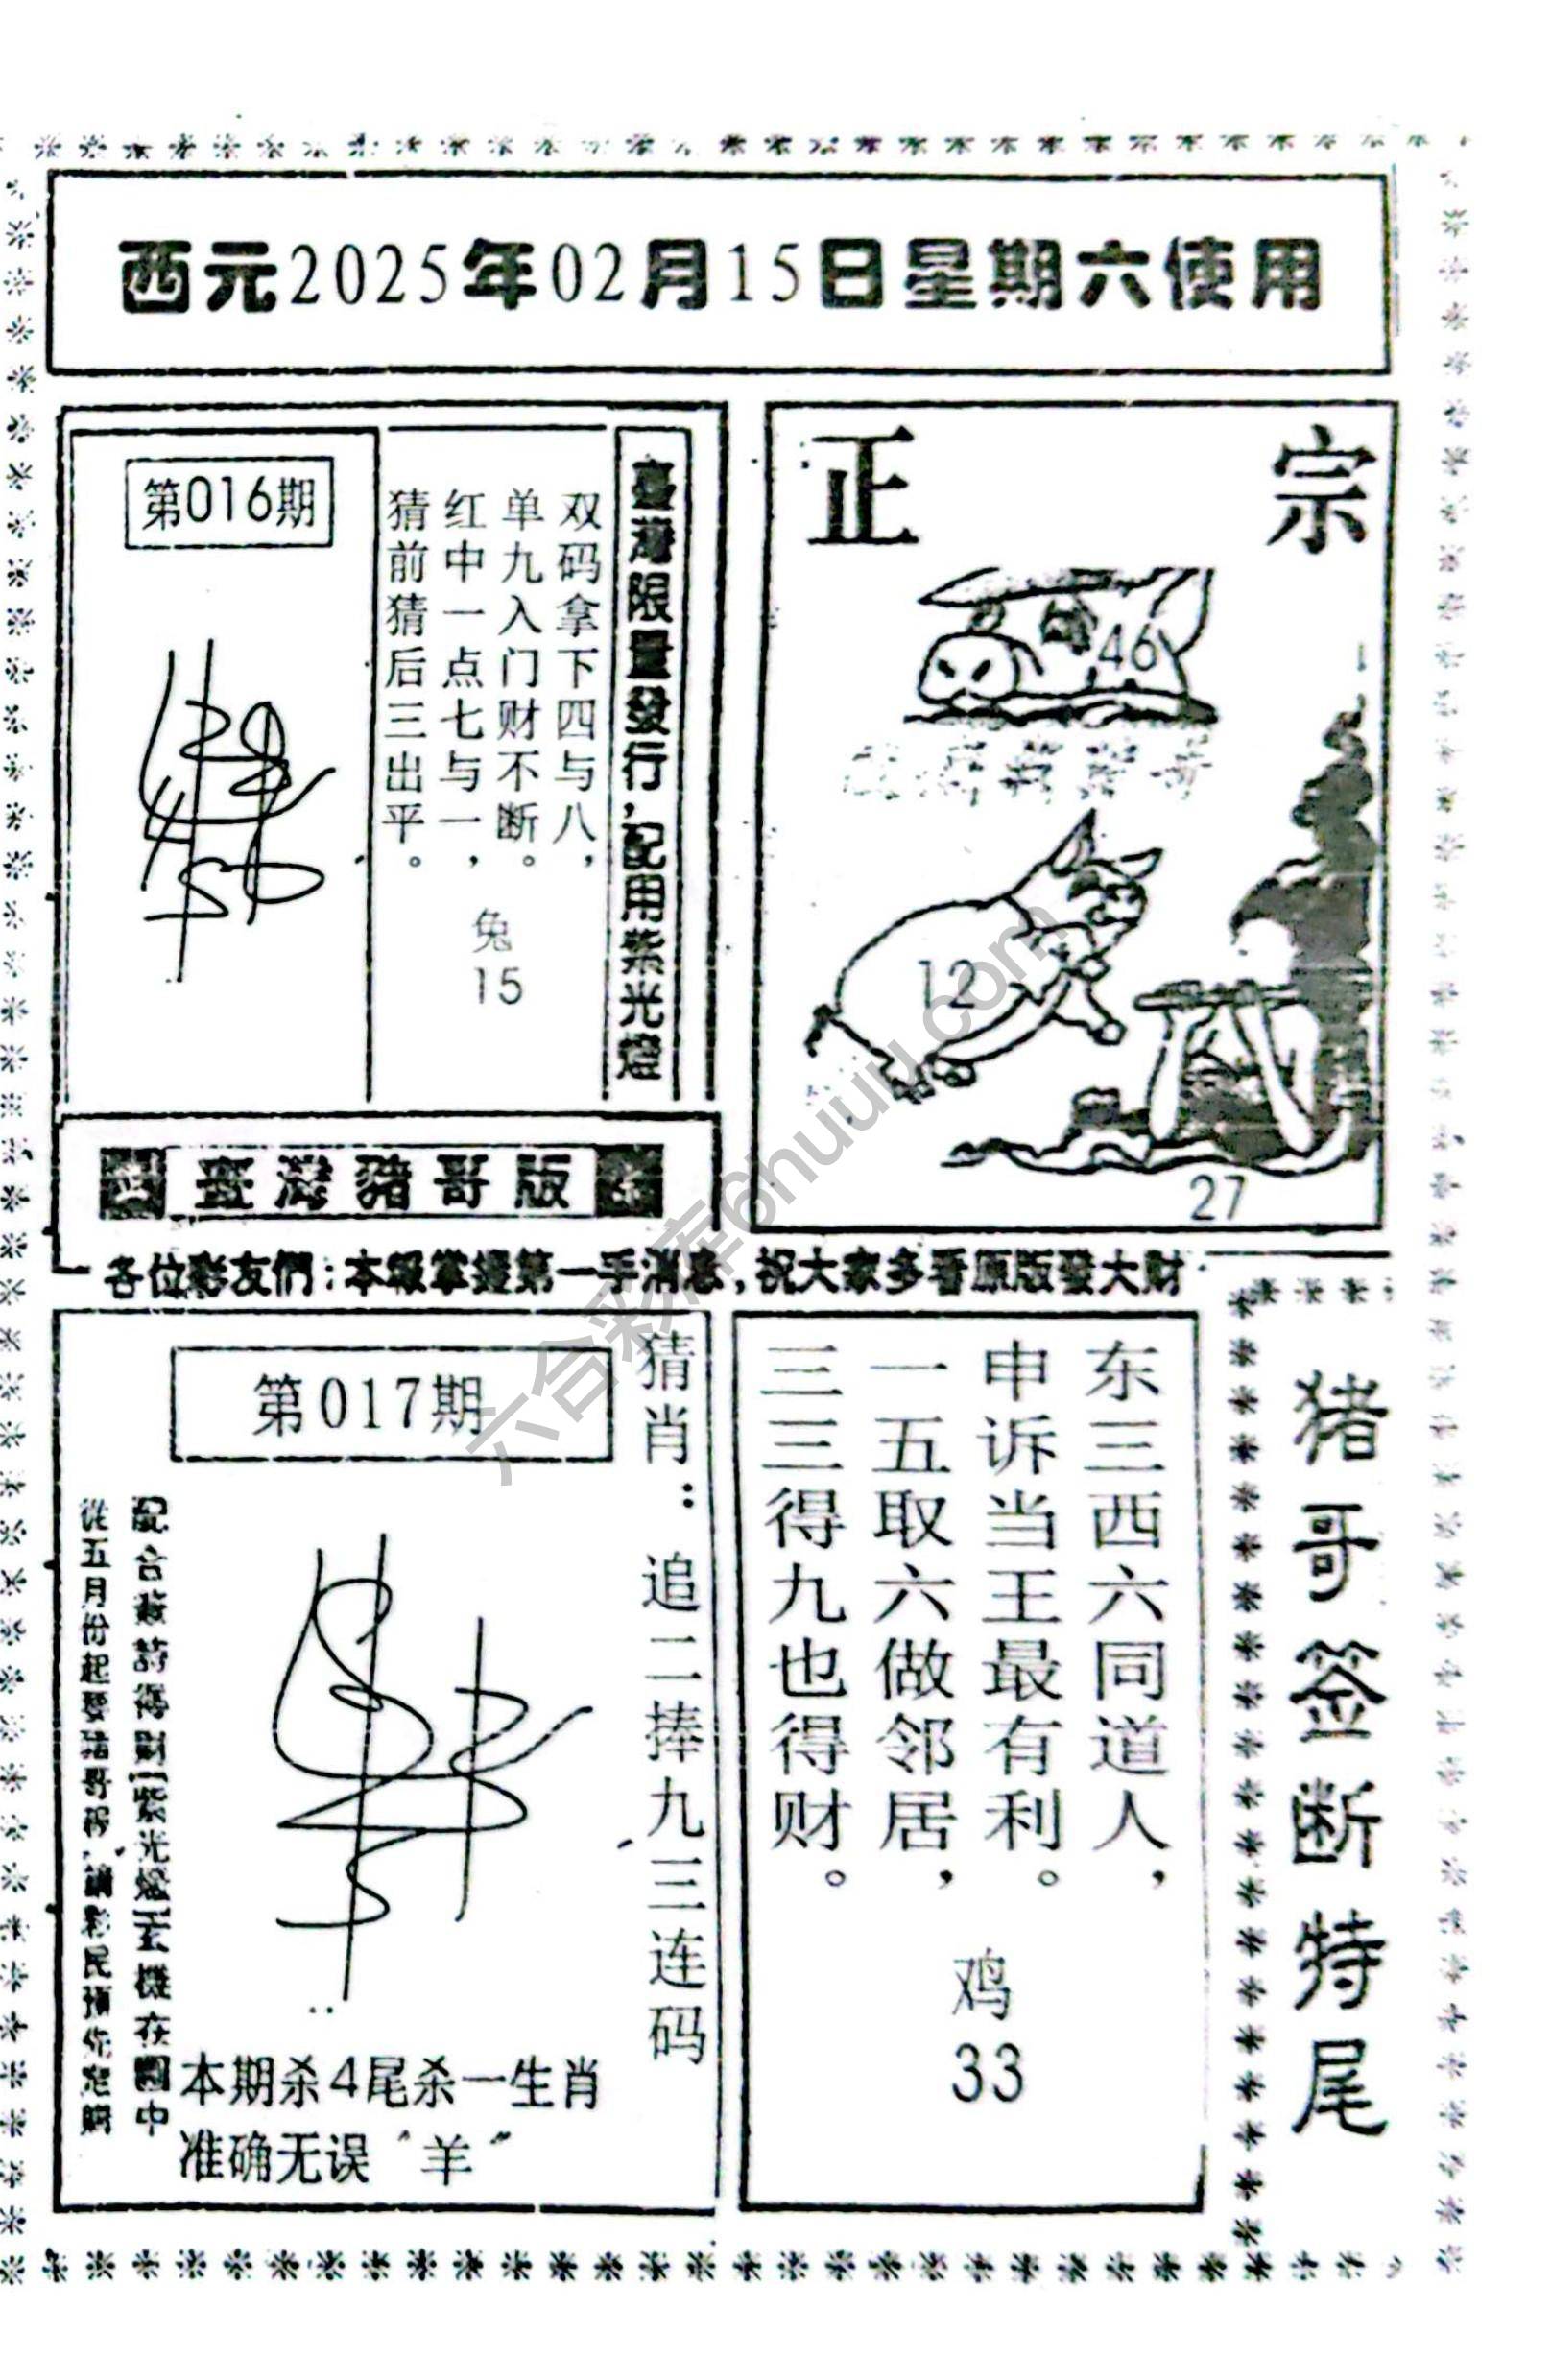 西元2025年02月15日星期六使用
第016期
臺灣限量發行，配用紫光燈
双码拿下四与八，
单九入门财不断。
红中一点七与一，
猜前猜后三出平。
兔
15
正 宗
46
12
27
臺灣豬哥版
各位彩友們：本報掌握第一手消息，祝大家多看原版發大財
第017期
猜肖：追二捧九三连码
從五月份起要猪哥报，請彩民預先定購
本期杀4尾杀一生肖
准确无误“羊”
东三西六同道人，
申诉当王最有利。
一五取六做邻居，
三三得九也得财。
鸡
33
猪哥签断特尾
六合彩库6huuu.com